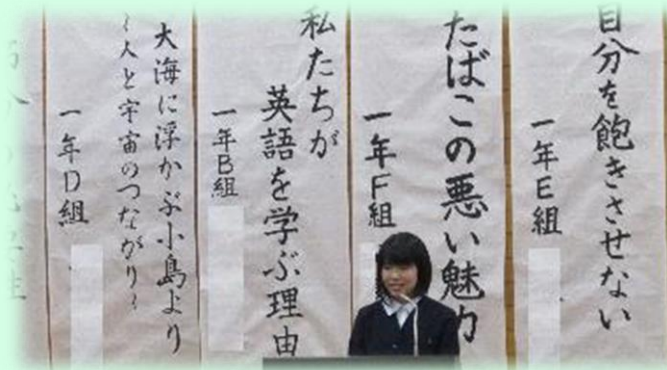 自分を飽きさせない
一年E組
たばこの悪い魅力
一年F組
私たちが
英語を学ぶ理由
一年B組
大海に浮かぶ小島より
~人と宇宙のつながり~
一年D組